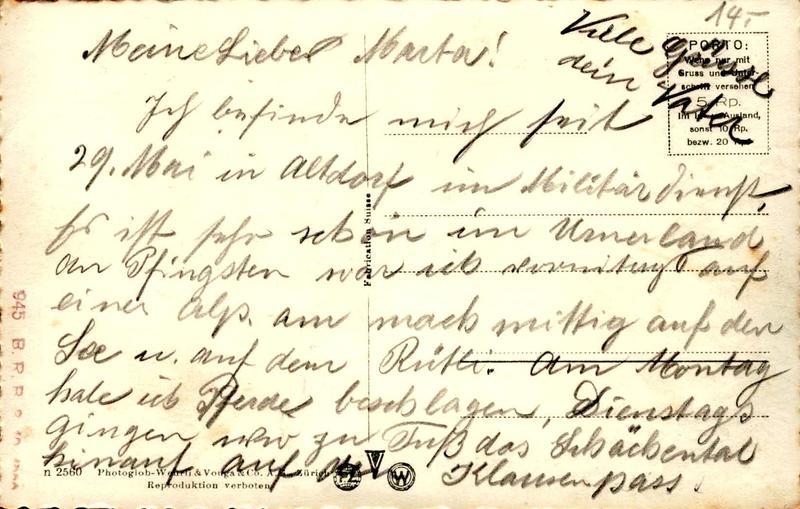 14.-
Viele Grüsse
dein Vater
PORTO:
Wenn nur mit
Gruss und Unter-
schrift versehen
5 Rp.
Im Ausland,
sonst 10 Rp.
bezw. 20 Rp.
Meine Liebe Marta!
Ich befinde mich seit
29. Mai in Altdorf im Militärdienst.
Es ist sehr schön im Urnerland
an Pfingsten war ich vormitag auf
einer Alp. am nachmittig auf den
See u. auf dem Rütli. Am Montag
habe ich Pferde beschlagen, Dienstags
gingen wir zu Fuß das Schächental
hinauf auf Klausenpass.
Fabrication Suisse
n 2560 Photoglob-Wehrli & Vouga & Co. A.G. Zürich
Reproduktion verboten